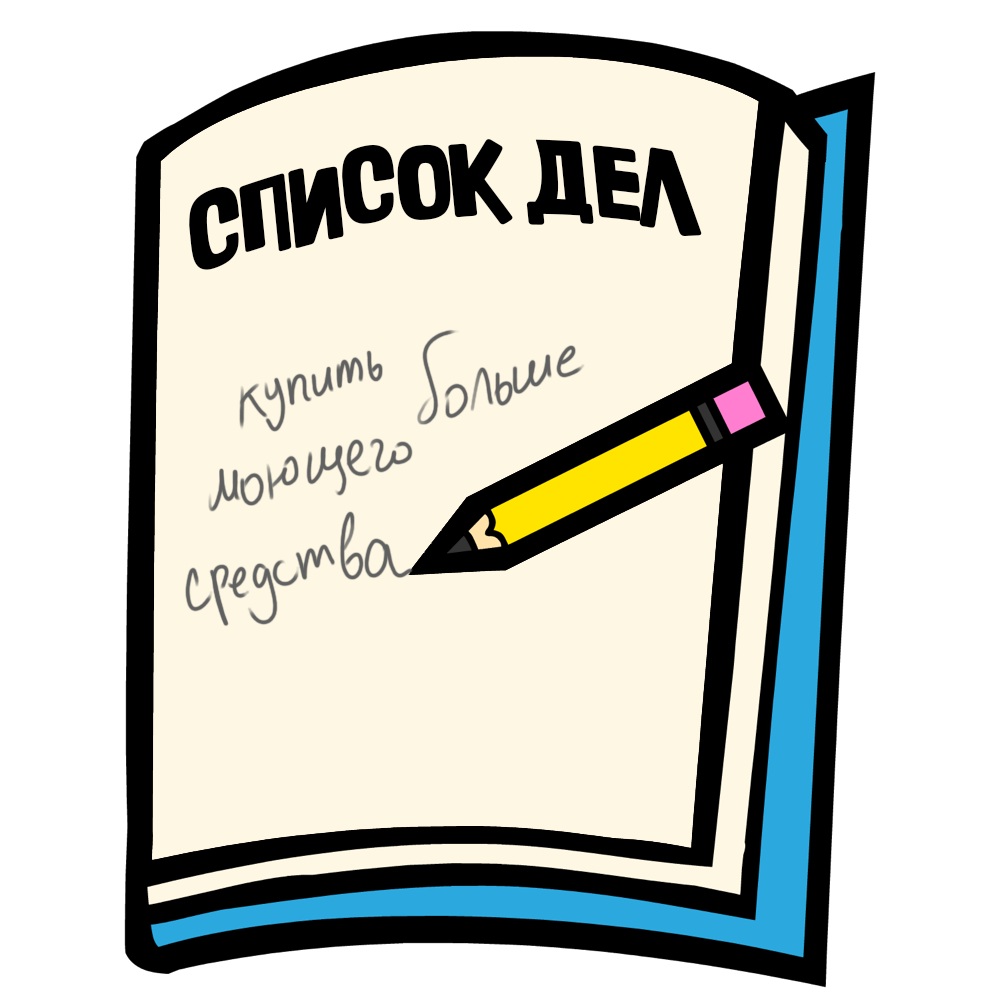 СПИСОК ДЕЛ
купить больше
моющего
средства